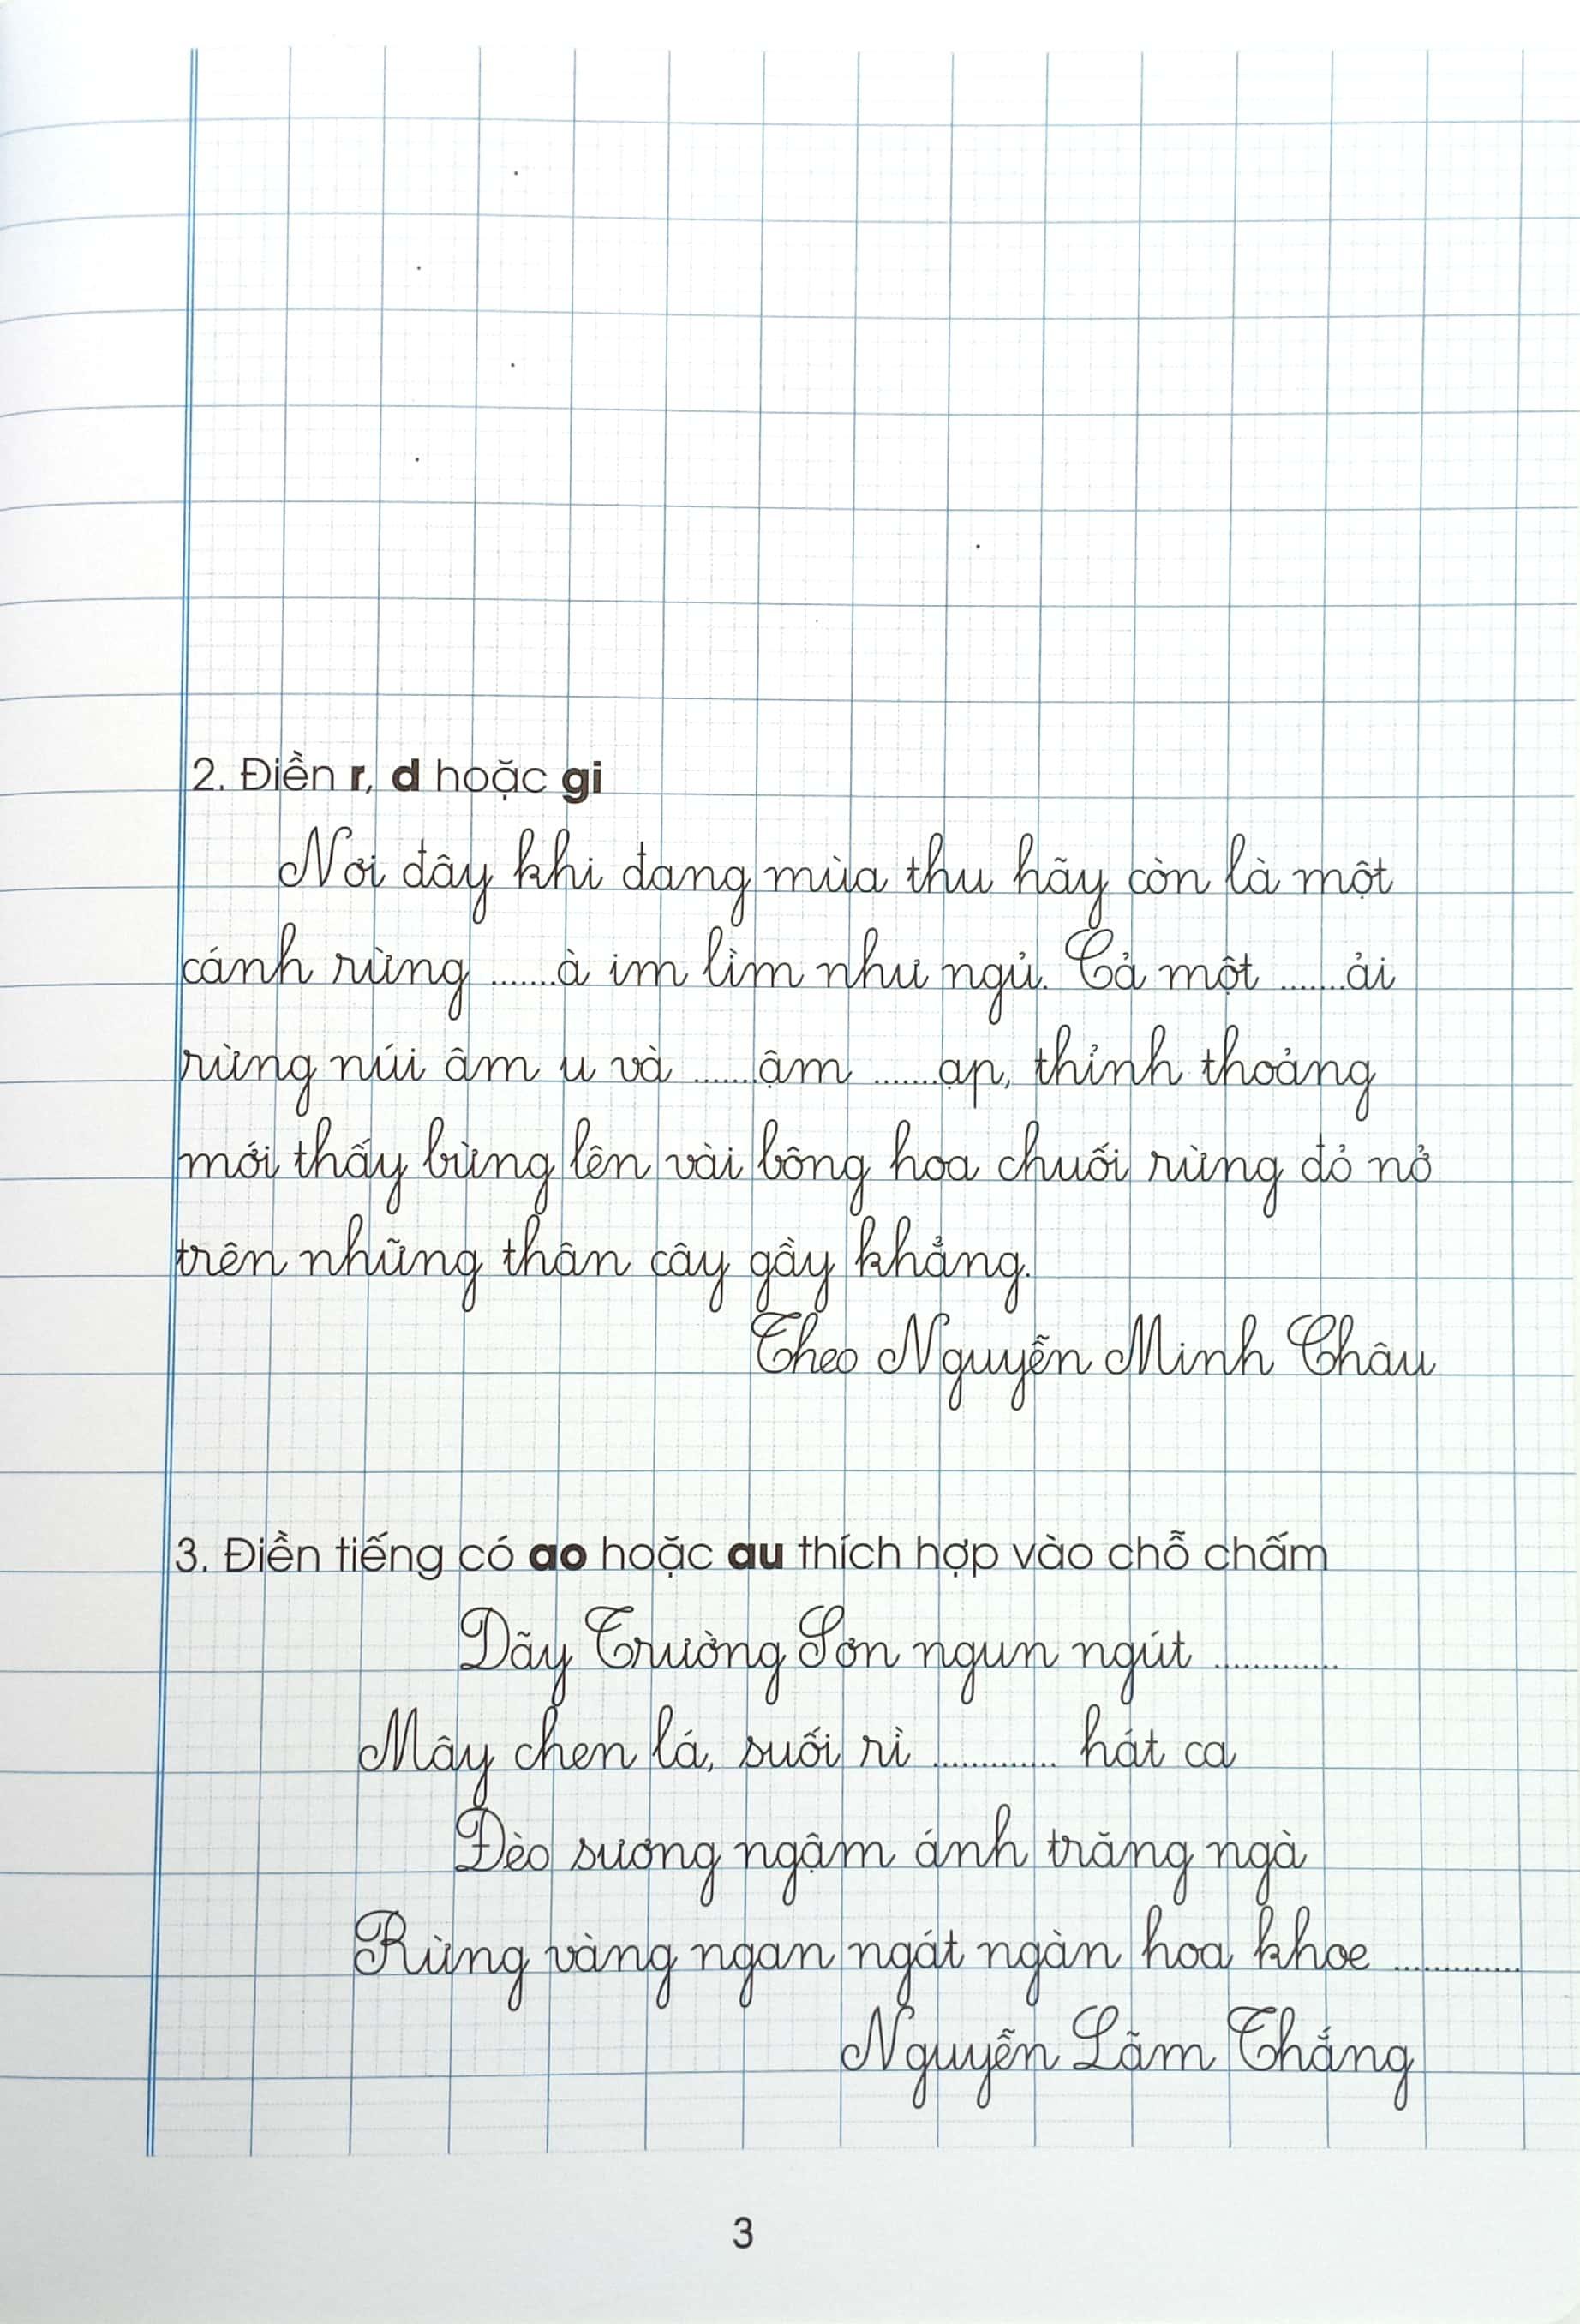 2. Điền r, d hoặc gi
Nơi đây khi đang mùa thu hãy còn là một
cánh rừng .......à im lìm như ngủ. Cả một .......ải
rừng núi âm u và .......ậm .......ạp, thỉnh thoảng
mới thấy bừng lên vài bông hoa chuối rừng đỏ nở
trên những thân cây gầy khẳng.
Theo Nguyễn Minh Châu
3. Điền tiếng có ao hoặc au thích hợp vào chỗ chấm
Dãy Trường Sơn ngun ngút .............
Mây chen lá, suối rì ............. hát ca
Đèo sương ngậm ánh trăng ngà
Rừng vàng ngan ngát ngàn hoa khoe .............
Nguyễn Lãm Thắng
3